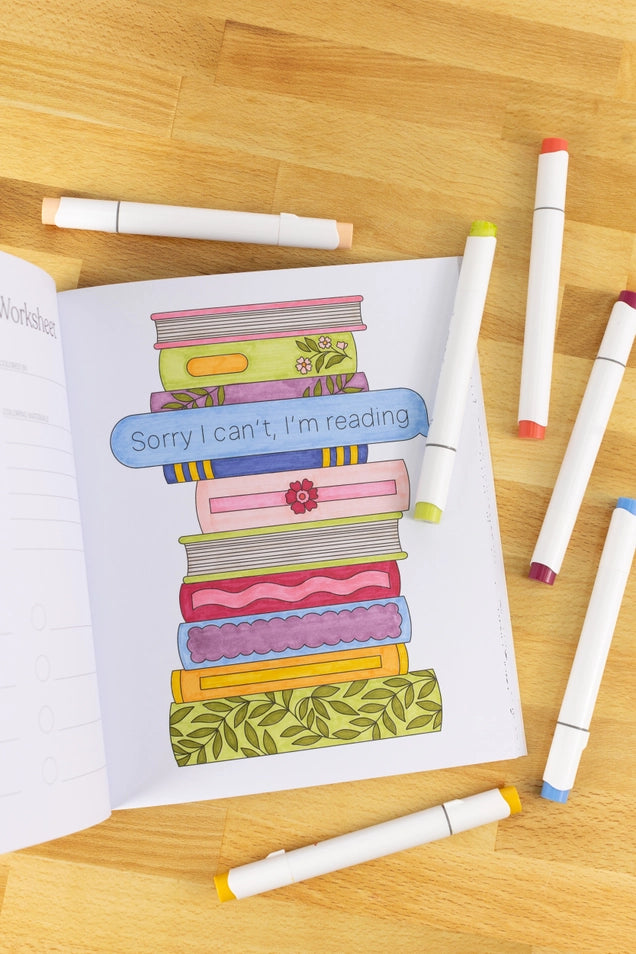 Worksheet
COLORED BY
COLORING MATERIALS
Sorry I can't, I'm reading